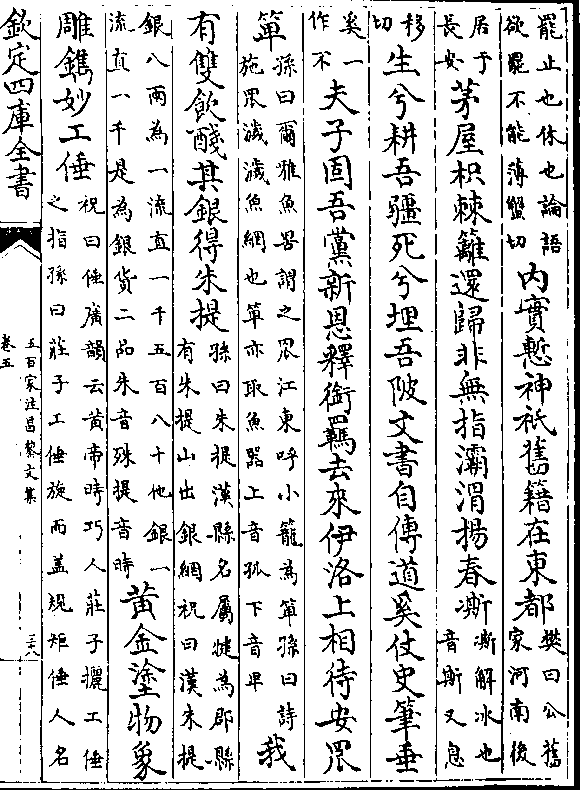 罷止也休也論語
欲罷不能薄蟹切
內實慙神祇舊籍在東都
樊曰公舊
家河南後
居于
長安
茅屋枳棘籬還歸非無指灞渭揚春澌
澌解冰也
音斯又息
移
切
生兮耕吾疆死兮埋吾陂文書自傳道奚仗史筆垂
奚一
作不
夫子固吾黨新恩釋銜羈去來伊洛上相待安罛
箄
孫曰爾雅魚罟謂之罛江東呼小籠為箄孫曰詩
施罛濊濊魚網也箄亦取魚器上音孤下音卑
我
有雙飲醆其銀得朱提
孫曰朱提漢縣名屬犍為郡縣
有朱提山出銀網祝曰漢朱提
銀八兩為一流直一千五百八十他銀一
流直一千是為銀貨二品朱音殊提音時
黃金塗物象
雕鐫妙工倕
祝曰倕廣韻云黃帝時巧人莊子攦工倕
之指孫曰莊子工倕旋而蓋規矩倕人名
欽定四庫全書
五百家注昌黎文集
卷五
三六